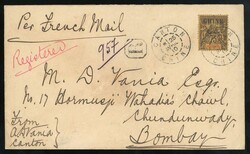 Per French Mail
Registered
957
R
CANTON
CHINE
M. D. Vania Esqr.
No. 17 Hormusji Wahadia's Chawl,
Chundunwady
Bombay
From
A D Vania
Canton